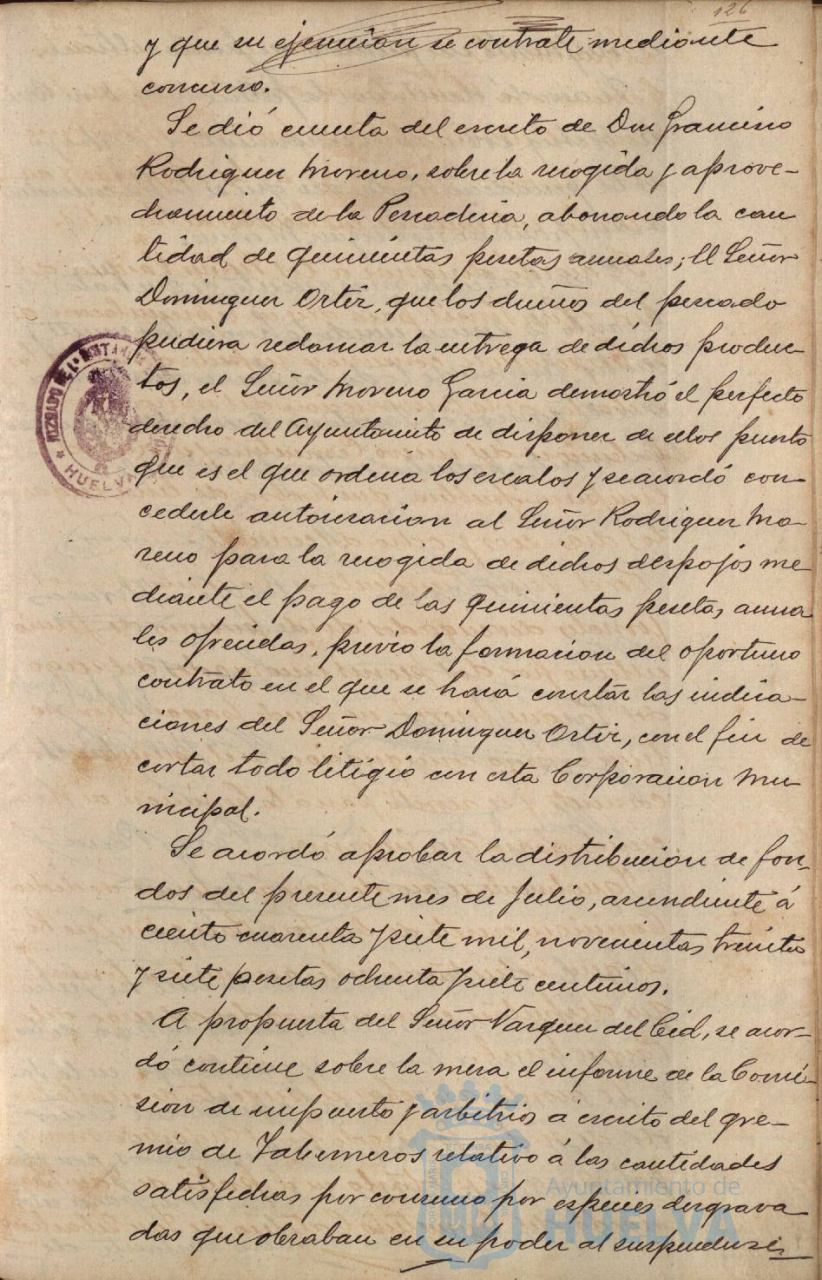 126
y que su ejecución se contrate mediante
concurso.
Se dió cuenta del escrito de Don Francisco
Rodriguez Moreno, sobre la recogida y aprove-
chamiento de la Pescaderia, abonando la can
tidad de quinientas pesetas anuales; El Señor
Dominguez Ortiz, que los dueños del pescado
pudiera reclamar la entrega de dichos produc-
tos, el Señor Moreno Garcia demostró el perfecto
derecho del Ayuntamiento de disponer de ellos puesto
que es el que ordena los escalos y se acordó con-
cederle autorizacion al Señor Rodriguez Mo-
reno para la recogida de dichos despojos me
diante el pago de las quinientas pesetas anua
les ofrecidas, previo la formacion del oportuno
contrato en el que se hará constar las indica-
ciones del Señor Dominguez Ortiz, con el fin de
cortar todo litigio con esta Corporacion Mu-
nicipal.
Se acordó aprobar la distribucion de fon-
dos del presente mes de Julio, ascendiente á
ciento cuarenta y siete mil, novecientas treinta
y siete pesetas ochenta y siete centimos.
A propuesta del Señor Vazquez del Cid, se acor-
dó continue sobre la mesa el informe de la Comi-
sion de impuesto y arbitrios á escrito del gre-
mio de Taberneros relativo á las cantidades
satisfechas por consumo por especies desgrava
das que obraban en su poder al suspenderse
JUZGADO DE 1ª INSTAN
HUELVA
Ayuntamiento de
HUELVA